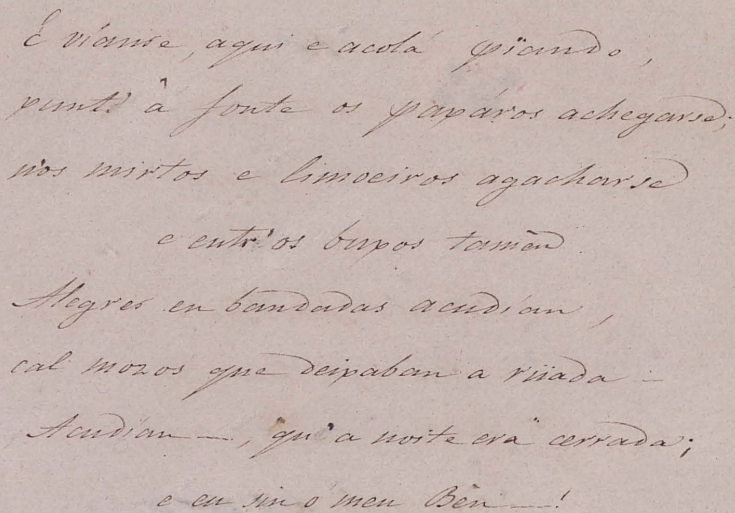 E víanse, aquí e acolá piando,
xunt' â fonte os paxáros achegarse;
nos mirtos e limoeiros agacharse
e entr' os buxos tamên
Alegres en bandadas acudían,
cal mozos que deixaban a rüada –
Acudían —, qu' a noite era cerrada;
e eu sin o meu Ben —!